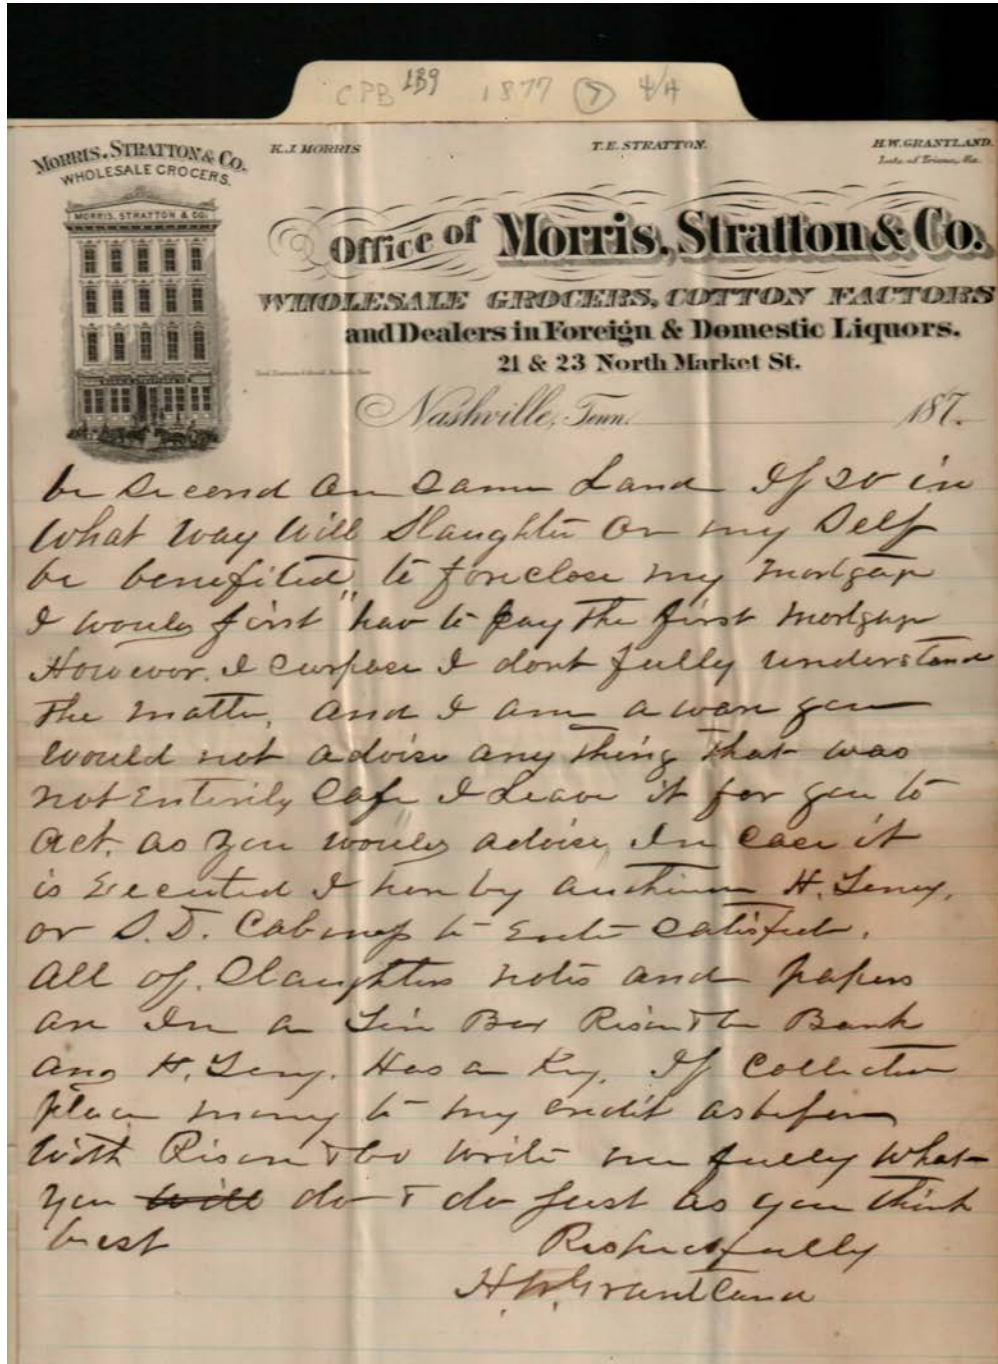 CPB 189 1877 (7) 4/A
MORRIS, STRATTON & CO.
WHOLESALE GROCERS.
MORRIS, STRATTON & CO.
K.J. MORRIS T.E. STRATTON. H.W. GRANTLAND.
Late of Triana, Ala.
Office of Morris, Stratton & Co.
WHOLESALE GROCERS, COTTON FACTORS
and Dealers in Foreign & Domestic Liquors.
21 & 23 North Market St.
Nashville, Tenn. 187.
be Second on Same Land If so in
What way Will Slaughter or my Self
be benefited, to foreclose my mortgage
I would first " hav to pay the first mortgage
However. I surpose I dont fully understand
the matter, and I am aware you
would not advise any thing that was
not Entirily Safe I Leave it for you to
act, as you would advise, In case it
is Executed I here by authorize H.
or S. D. to Enter Satisfact.
All of Slaughters notes and papers
are In a Tin Box Rison & Co Bank
and H. Has a Key. If Collected
place money to my credit as before
With Rison & Co write me fully what
you will do & do just as you think
best Respectfully
H.W. Grantland